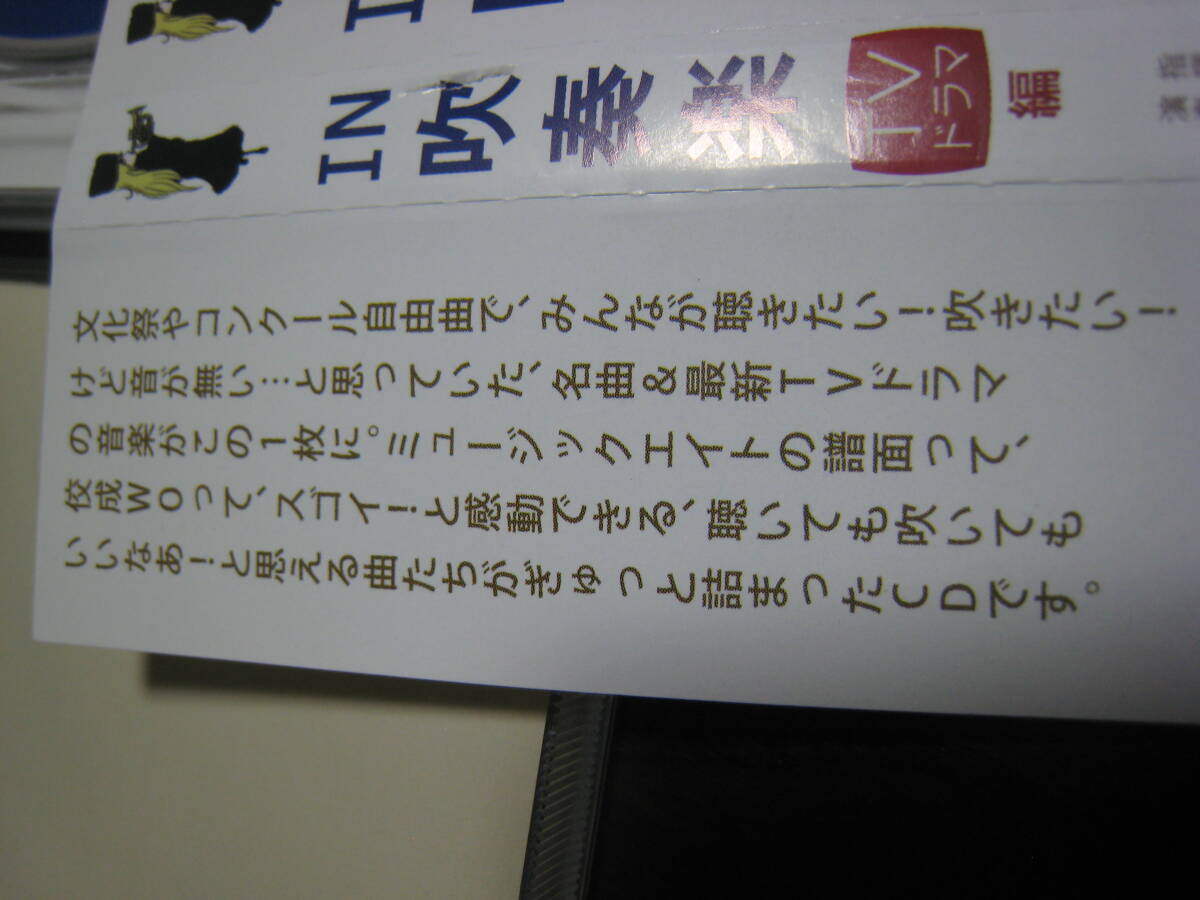 IN
IN 吹奏楽 TVドラマ 編
指揮
演
文化祭やコンクール自由曲で、みんなが聴きたい!吹きたい!
けど音が無い…と思っていた、名曲&最新TVドラマ
の音楽がこの1枚に。ミュージックエイトの譜面って、
佼成WOって、ズゴイ!と感動できる、聴いても吹いても
いいなぁ!と思える曲たちがぎゅっと詰まったCDです。